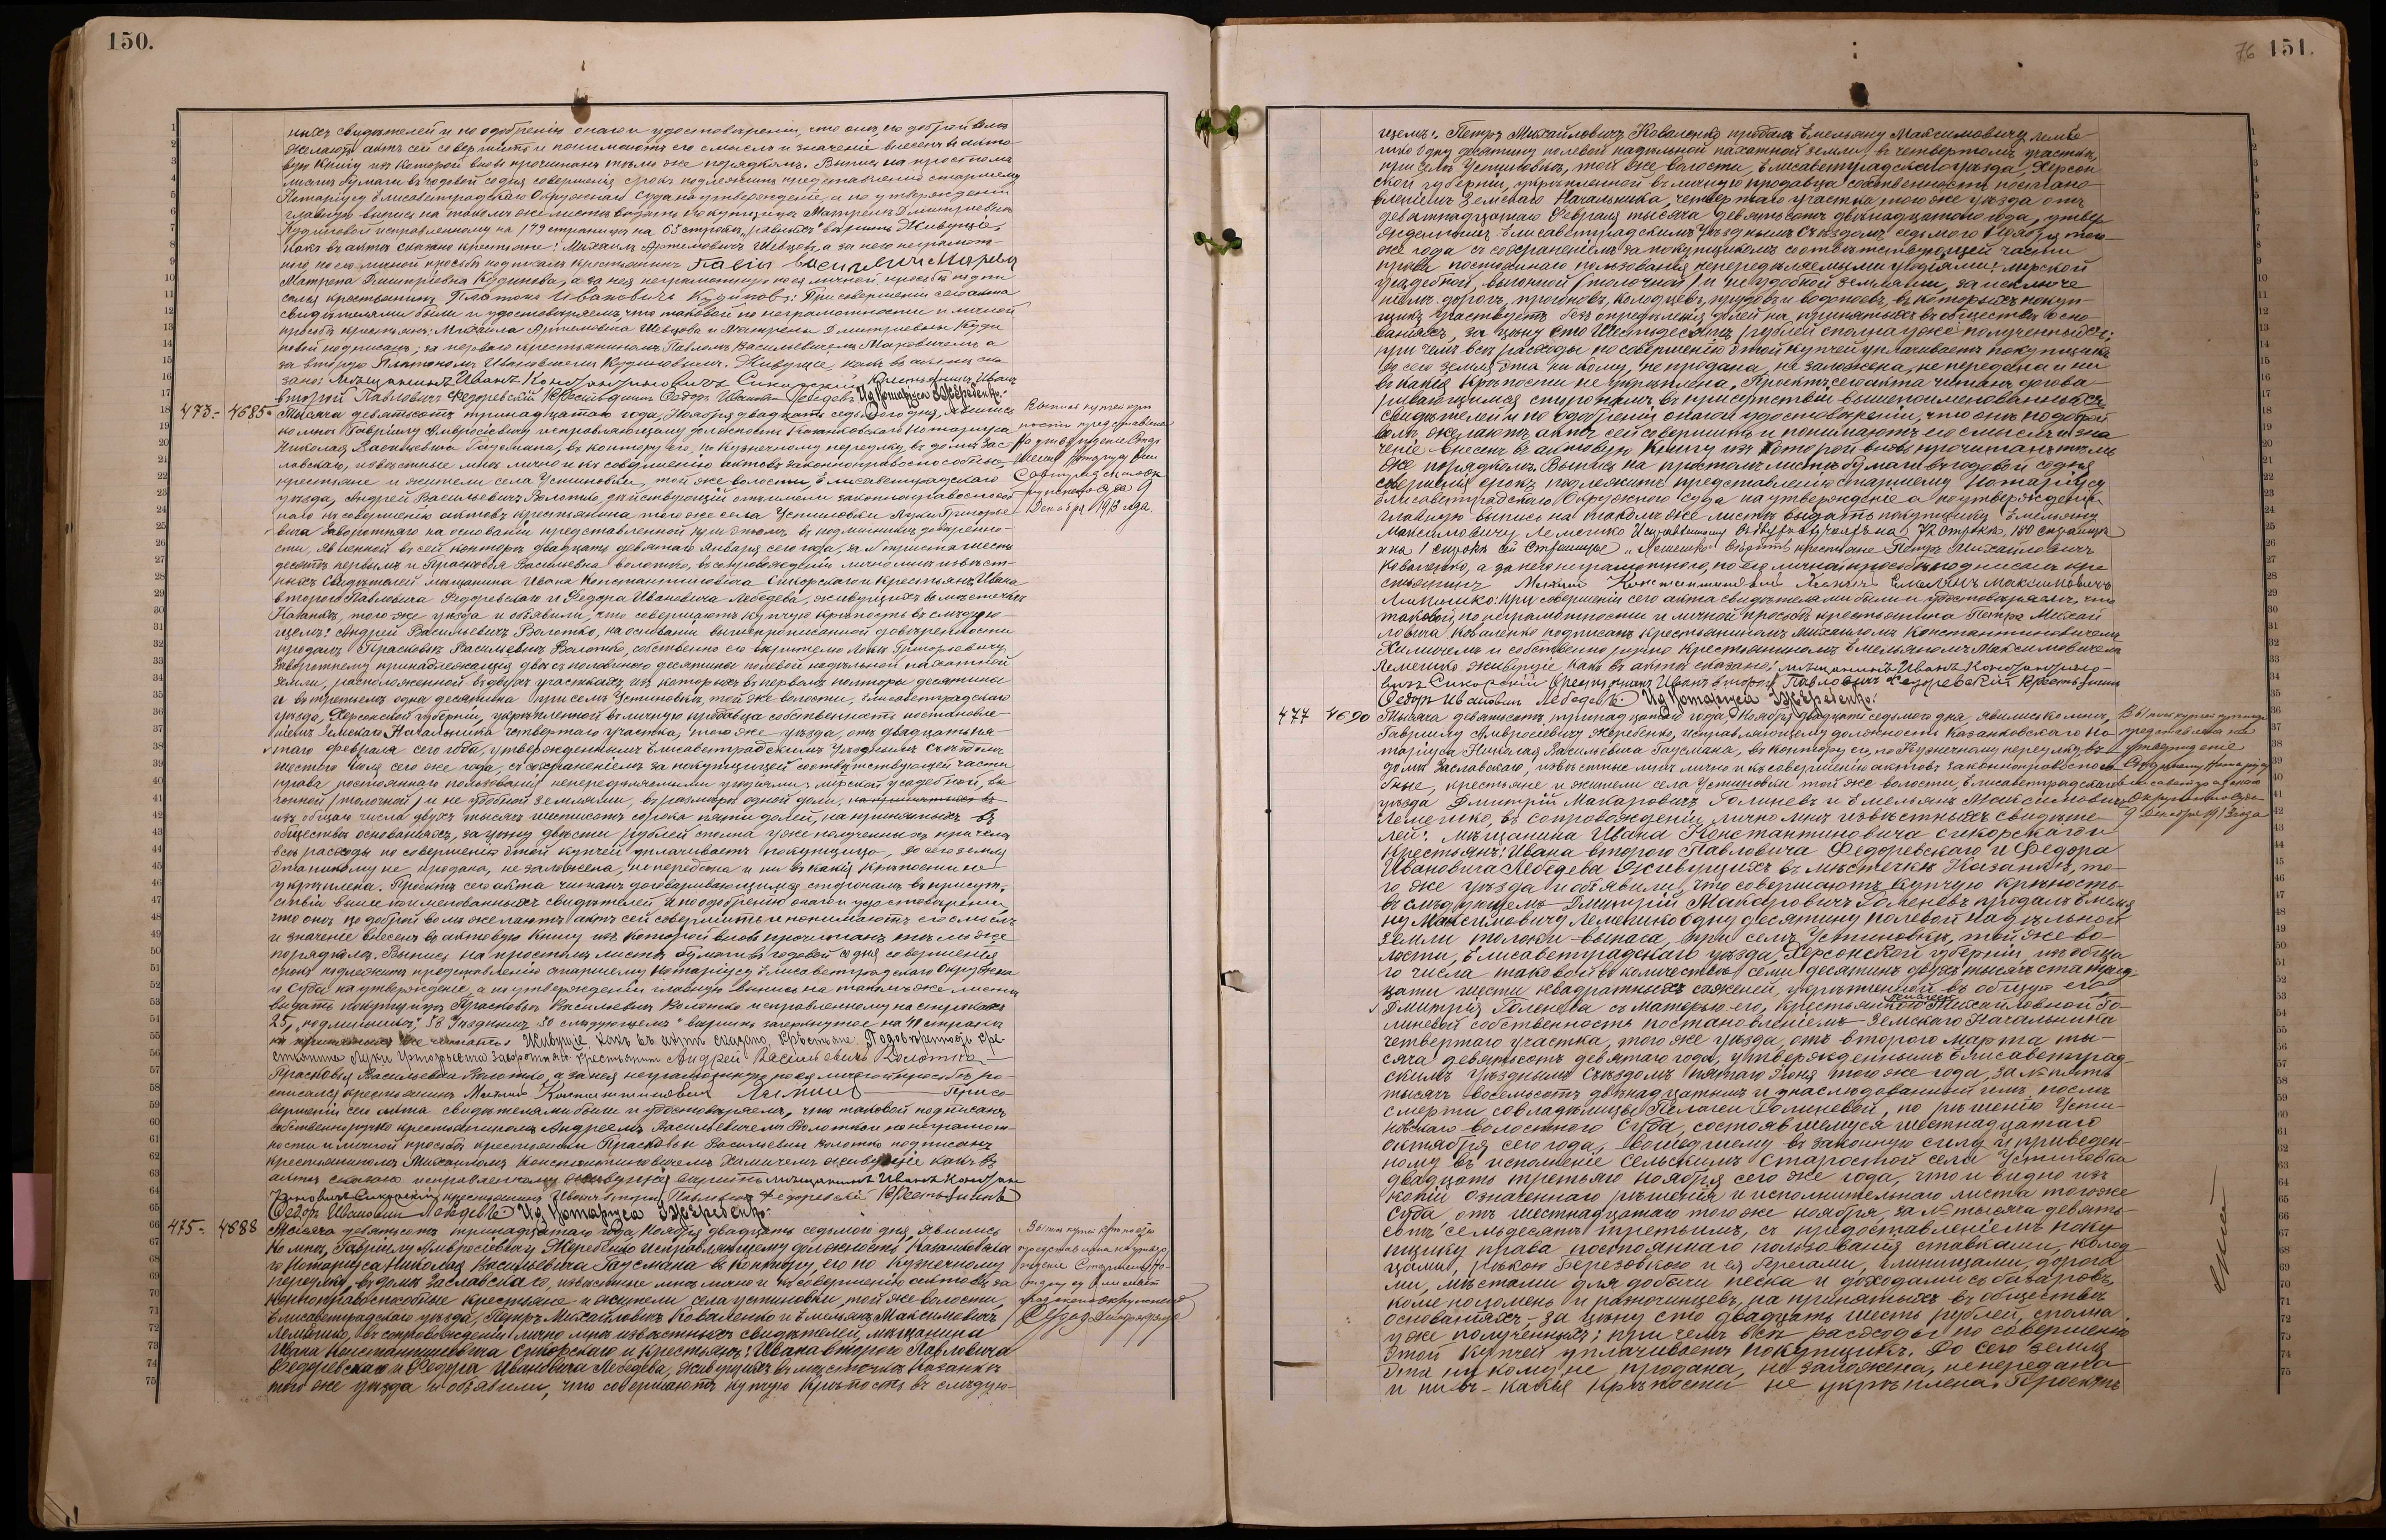 150.
ныхъ свидѣтелей и по одобренiи онаго и удостовѣренiи, что онѣ, по доброй волѣ
желаютъ актъ сей совершить и понимаютъ его смыслъ и значенiе внесенъ въ акто-
вую книгу изъ которой вновь прочитанъ тѣмъ же порядкомъ. Выпись на простомъ
листѣ бумаги въ годовой со дня совершенiя срокъ подлежитъ представленiю старшему
Нотарiусу Елисаветградскаго Окружнаго Суда на утвержденiе, а по утвержденiи
главную выпись на такомъ же листѣ выдать покупщицѣ Матренѣ Дмитрiевнѣ
Кудиновой исправленному на 149 страницѣ на 65 строкѣ вѣрить. Живущiе,
какъ въ актѣ сказано крестьяне: Михаилъ Артемовичъ Шевцовъ, а за него неграмот-
наго по его личной просьбѣ подписался крестьянинъ Павелъ Васильевичъ
Матрена Дмитрiевна Кудинова, а за нея неграмотную по ея личной просьбѣ подпи
сался крестьянинъ Платонъ Ивановичъ Кудиновъ: При совершенiи сего акта
свидѣтелями были и удостовѣряемъ, что таковой по неграмотности и личной
просьбѣ крестьянъ: Михаила Артемовича Шевцова и Матрены Дмитрiевны Куди
новой подписанъ; за перваго крестьяниномъ Павломъ Васильевичемъ а
за вторую Платономъ Ивановичемъ Кудиновымъ. Живущiе, какъ въ актѣ ска
зано: мѣщанинъ Иванъ Константиновичъ Сикорскiй Крестьянинъ Иванъ
второй Павловичъ Федоревскiй Крестьянинъ Федоръ Ивановъ Лебедевъ Ид Нотарiуса ГЖеребенко.
473- 4685- Тысяча девятьсотъ тринадцатаго года, Ноября двадцать седьмого дня, явились
ко мнѣ Гаврiилу Амвросiевичу исправляющему должность Казанковскаго Нотарiуса
Николая Васильевича Гаусмана, въ контору его, по Кузнечному переулку въ домѣ Зас
лавскаго, извѣстные мнѣ лично и къ совершенiю актовъ законноправоспособные,
крестьяне и жители села Устиновки, той же волости, Елисаветградскаго
уѣзда, Андрей Васильевичъ Волотко, дѣйствующiй отъ имени законноправоспособ
наго къ совершенiю актовъ крестьянина того же села Устиновки Луки Григорье
вича Заворотняго на основанiи представленной при этомъ въ подлинникѣ довѣренно-
сти, явленной въ сей конторѣ двадцать девятаго Января сего года, за № триста шесть
десятъ первымъ и Прасковья Васильевна Волотко, въ сопровожденiи лично мнѣ извѣст-
ныхъ свидѣтелей мѣщанина Ивана Константиновича Сикорскаго и крестьянъ, Ивана
второго Павловича Федоревскаго и Федора Ивановича Лебедева, живущихъ въ мѣстечкѣ
Казанкѣ, того же уѣзда и объявили, что совершаютъ купчую крѣпость въ слѣдую-
щемъ: Андрей Васильевичъ Волотко, на основанiи вышепрописанной довѣренности
продалъ Прасковьѣ Васильевнѣ Волотко, собственно его вѣрителю Лукѣ Григорьевичу
Заворотнему принадлежащiя двѣ съ половиною десятины полевой надѣльной пахатной
земли, расположенной въ двухъ участкахъ, изъ которыхъ въ первомъ полторы десятины
и въ третьемъ одна десятина при селѣ Устиновкѣ, той же волости, Елисаветградскаго
уѣзда, Херсонской губернiи, укрѣпленной въ личную продавца собственность постановле-
нiемъ Земскаго Начальника четвертаго участка, того же уѣзда, отъ двадцать пя-
таго Февраля сего года, утвержденнымъ Елисаветградскимъ Уѣзднымъ Съѣздомъ
шестого Iюля сего же года, съ сохраненiемъ за покупщицей соотвѣтствующей части
права постояннаго пользованiя непередѣляемыми угодiями: мiрской усадебной, вы
гонной /толочной/ и не удобной землями, въ размѣрѣ одной доли,
изъ общаго числа двухъ тысячъ шестисотъ сорока пяти долей, на принятыхъ въ
обществѣ основанiяхъ, за цѣну двѣсти рублей сполна уже полученныхъ при чемъ
всѣ расходы по совершенiю этой купчей уплачиваетъ покупщица, до сего земля
эта никому не продана, не заложена, не передана и ни въ какiя крѣпости не
укрѣплена. Проэктъ сего акта читанъ договаривающимся сторонамъ въ присут-
ствiи вышепоименованныхъ свидѣтелей и по одобренiи онаго и удостовѣренiи
что онѣ по доброй волѣ желаютъ актъ сей совершить и понимаютъ его смыслъ
и значенiе внесенъ въ актовую книгу изъ которой вновь прочитанъ тѣмъ же
порядкомъ. Выпись на простомъ листѣ бумаги въ годовой со дня совершенiя
срокъ подлежитъ представленiю старшему Нотарiусу Елисаветградскаго Окружна
го Суда на утвержденiе, а по утвержденiи главную выпись на такомъ же листѣ
выдать покупщицѣ Прасковьѣ Васильевнѣ Волотко исправленному на строкахъ
25 „подлинникѣ“, 38 „Уѣзднымъ“ 30 „слѣдующемъ“ вѣрить зачеркнутое на 41 строкѣ
не читать: Живущiе, какъ въ актѣ сказано, крестьяне. По довѣренности кре-
стьянина Луки Григорьевича Заворотняго крестьянинъ Андрей Васильевичъ Волотко.
Прасковья Васильевна Волотко, а за нея неграмотную по ея личной просьбѣ ро-
списался крестьянинъ Михаилъ Константиновичъ При со-
вершенiи сего акта свидѣтелями были и удостовѣряемъ, что таковой подписанъ
собственноручно крестьяниномъ Андреемъ Васильевичемъ Волоткой по неграмот-
ности и личной просьбѣ крестьянки Прасковьи Васильевны Волотко подписанъ
крестьяниномъ Михаиломъ Константиновичемъ Химичемъ живущiе какъ въ
актѣ сказано исправленному живущiя вѣрить мѣщанинъ Иванъ Констан
тиновичъ Сикорскiй крестьянинъ Иванъ второй Павловичъ Федоревскiй Крестьянинъ
Федоръ Ивановъ Лебедевъ Ид Нотарiуса ГЖеребенко.
475- 4888 Тысяча девятьсотъ тринадцатаго года, Ноября двадцать седьмого дня, явились
ко мнѣ, Гаврiилу Амвросiевичу Жеребенко исправляющему должность Казанковска
го Нотарiуса Николая Васильевича Гаусмана въ контору, его по Кузнечному
переулку, въ домѣ Заславскаго, извѣстные мнѣ лично и къ совершенiю актовъ за
конноправоспособные крестьяне и жители села Устиновки, той же волости,
Елисаветградскаго уѣзда, Петръ Михайловичъ Коваленко и Емельянъ Максимовичъ
Лемешко, въ сопровожденiи лично мнѣ извѣстныхъ свидѣтелей, мѣщанина
Ивана Константиновича Сикорскаго и крестьянъ: Ивана второго Павловича
Федоревскаго и Федора Ивановича Лебедева, живущихъ въ мѣстечкѣ Казанкѣ
того же уѣзда и объявили, что совершаютъ купчую крѣпость въ слѣдую-
76 151.
щемъ: Петръ Михайловичъ Коваленко продалъ Емельяну Максимовичу Леме-
шко одну десятину полевой надѣльной пахатной земли въ четвертомъ участкѣ,
при селѣ Устиновкѣ, той же волости, Елисаветградскаго уѣзда, Херсон
ской губернiи, укрѣпленной въ личную продавца собственность постано-
вленiемъ Земскаго Начальника, четвертаго участка того же уѣзда отъ
девятнадцатаго Февраля тысяча девятьсотъ двѣнадцатаго года, утвер
жденнымъ Елисаветградскимъ Уѣзднымъ Съѣздомъ седьмого Ноября того
же года съ сохраненiемъ за покупщикомъ соотвѣтствующей части
права постояннаго пользованiя непередѣляемыми угодiями: мiрской
усадебной, выгонной /толочной/ и не удобной землями, за исключе
нiемъ дорогъ, прогоновъ, колодцевъ, прудовъ и водопоевъ, въ которыхъ покуп-
щикъ участвуетъ безъ опредѣленiя долей на, принятыхъ въ обществѣ осно
ванiяхъ, за цѣну сто шестьдесятъ рублей сполна уже полученныхъ;
при чемъ всѣ расходы по совершенiю этой купчей уплачиваетъ покупщикъ
До сего земля эта ни кому, не продана, не заложена, не передана и ни
въ какiя крѣпости не укрѣплена. Проэктъ сего акта читанъ догова-
ривающимся сторонамъ въ присутствiи вышепоименованныхъ
свидѣтелей и по одобренiи онаго и удостовѣренiи, что онѣ по доброй
волѣ желаютъ актъ сей совершить и понимаютъ его смыслъ и зна
ченiе внесенъ въ актовую книгу изъ которой вновь прочитанъ тѣмъ
же порядкомъ. Выпись на простомъ листѣ бумаги въ годовой со дня
совершенiя срокъ подлежитъ представленiю старшему Нотарiусу
Елисаветградскаго Окружного Суда на утвержденiе а по утвержденiи
главную выпись на такомъ же листѣ выдать покупщику Емельяну
Максимовичу Лемешко на 72 строкѣ, 150 страницы
и на 1 строкѣ сей страницы „Лемешко“ вѣрить крестьяне Петръ Михайловичъ
Коваленко, а за него неграмотного, по его личной просьбѣ подписался кре
стьянинъ Михаилъ Константиновичъ Емелянъ Максимовичъ
При совершенiи сего акта свидѣтелями были и удостовѣряемъ, что
таковой, по неграмотности и личной просьбѣ крестьянина Петра Михай
ловича Коваленко подписанъ крестьяниномъ Михаиломъ Константиновичемъ
Химичемъ и собственноручно крестьяниномъ Емельяномъ Максимовичемъ
Лемешко живущiе какъ въ актѣ сказано: мѣщанинъ Иванъ Константино-
вичъ Сикорскiй Крестьянинъ Иванъ второй Павловичъ Федоревскiй Крестьянинъ
Федоръ Ивановъ Лебедевъ Ид Нотарiуса ГЖеребенко.
477 4690 Тысяча девятьсотъ тринадцатаго года, Ноября двадцать седьмого дня, явились ко мнѣ,
Гаврiилу Амвросiевичу Жеребенко, исправляющему должность Казанковскаго Но
тарiуса Николая Васильевича Гаусмана, въ контору его, по Кузнечному переулку, въ
домѣ Заславскаго, извѣстные мнѣ лично и къ совершенiю актовъ законноправоспосо
бные, крестьяне и жители села Устиновки той же волости, Елисаветградскаго
уѣзда Дмитрiй Макаровичъ Голиневъ и Емельянъ Максимовичъ
Лемешко, въ сопровожденiи лично мнѣ извѣстныхъ свидѣте
лей: мѣщанина Ивана Константиновича Сикорскаго и
крестьянъ: Ивана второго Павловича Федоревскаго и Федора
Ивановича Лебедева живущихъ въ мѣстечкѣ Казанкѣ, то-
го же уѣзда и объявили, что совершаютъ купчую крѣпость
въ слѣдующемъ Дмитрiй Макаровичъ Голиневъ продалъ Емелья
ну Максимовичу Лемешко одну десятину полевой надѣльной
земли толоки-выпаса, при селѣ Устиновкѣ, той же во-
лости, Елисаветградскаго уѣзда, Херсонской губернiи, изъ обща
го числа таковой въ количествѣ семи десятинъ двухъ тысячъ ста тридцати
шести квадратныхъ саженей, укрѣпленной въ общую его
Дмитрiя Голинева съ матерью его, крестьянкою Пелагеею Михайловной Го-
линевой собственность постановленiемъ Земскаго Начальника
четвертаго участка, того же уѣзда, отъ второго марта ты-
сяча девятьсотъ девятаго года, утвержденнымъ Елисаветград-
скимъ Уѣзднымъ Съѣздомъ пятаго Iюня того же года, за № пять
тысячъ восемьсотъ двѣнадцатымъ и унаслѣдованной имъ, послѣ
смерти совладѣлицы Пелагеи Голиневой, по рѣшенiю Усти-
новскаго волостного Суда, состоявшемуся шестнадцатаго
октября сего года, вошедшему въ законную силу и приведен-
ному въ исполненiе Сельскимъ Старостой села Устиновки
двадцать третьяго ноября сего же года, что и видно изъ
копiи означеннаго рѣшенiя и исполнительнаго листа того же
Суда отъ шестнадцатаго того же ноября, за № тысяча девять-
сотъ семьдесятъ третьимъ, съ предоставленiемъ поку
пщику права постояннаго пользованiя ставками, колод
цами, рѣкою Березовкою и ея берегами, глинищами, дорога
ми, мѣстами для добычи песка и доходами съ базаровъ,
и разночинцевъ, на принятыхъ въ обществѣ
основанiяхъ,- за цѣну сто двадцать шесть рублей, сполна
уже полученныхъ; при чемъ всѣ расходы по совершенiю
этой купчей уплачиваетъ покупщикъ. До сего земля
эта ни кому не продана, не заложена, не передана
и ни въ- какiя крѣпости не укрѣплена. Проэктъ